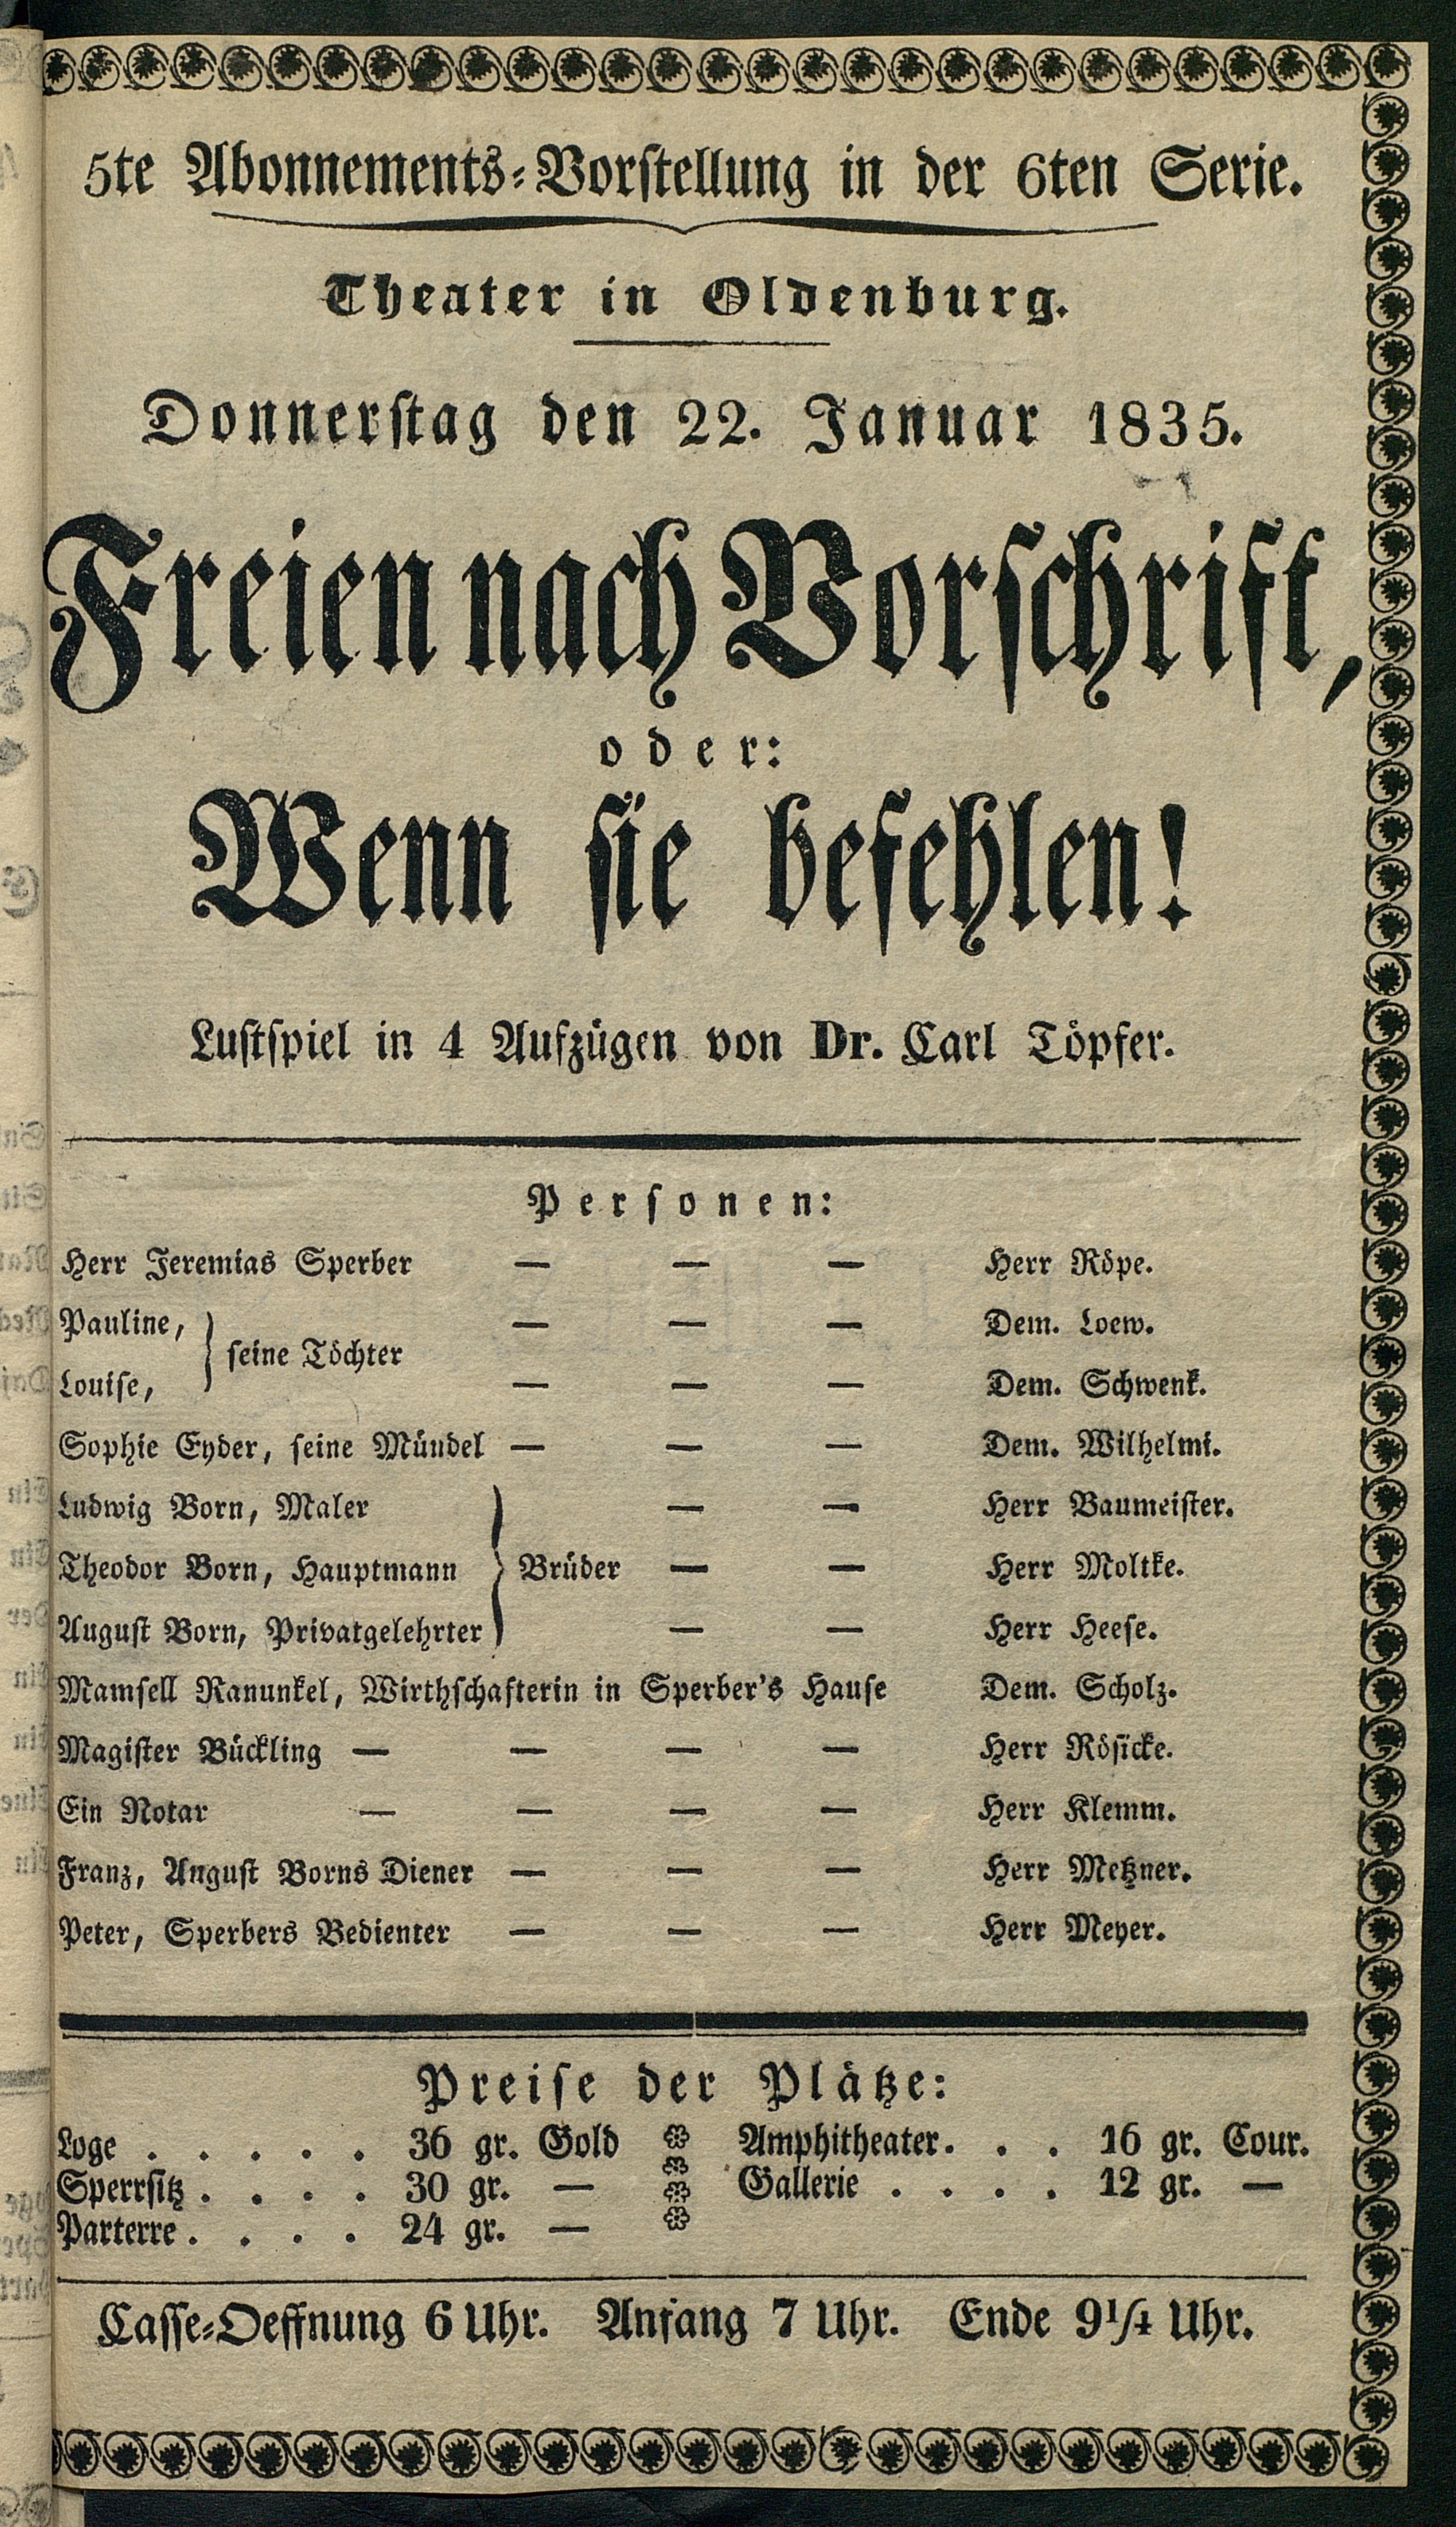 5te Abonnements-Vorstellung in der 6ten Serie.
Theater in Oldenburg.
Donnerstag den 22. Januar 1835.
Freien nach Vorschrift,
oder:
Wenn sie befehlen!
Lustspiel in 4 Aufzügen von Dr. Carl Töpfer.
Personen:
Herr Jeremias Sperber — — — Herr Röpe.
Pauline, — — — Dem. Loew.
seine Töchter
Louise, — — — Dem. Schwenk.
Sophie Eyder, seine Mündel — — — Dem. Wilhelmi.
Ludwig Born, Maler — — Herr Baumeister.
Theodor Born, Hauptmann Brüder — — Herr Moltke.
August Born, Privatgelehrter — — Herr Heese.
Mamsell Ranunkel, Wirthschafterin in Sperber's Hause Dem. Scholz.
Magister Bückling — — — — Herr Rösicke.
Ein Notar — — — — Herr Klemm.
Franz, August Borns Diener — — — Herr Metzner.
Peter, Sperbers Bedienter — — — Herr Meyer.
Preise der Plätze:
Loge . . . . . 36 gr. Gold Amphitheater. . . 16 gr. Cour.
Sperrsitz . . . . 30 gr. — Gallerie . . . . 12 gr. —
Parterre . . . . 24 gr. —
Casse-Oeffnung 6 Uhr. Anfang 7 Uhr. Ende 9 1/4 Uhr.